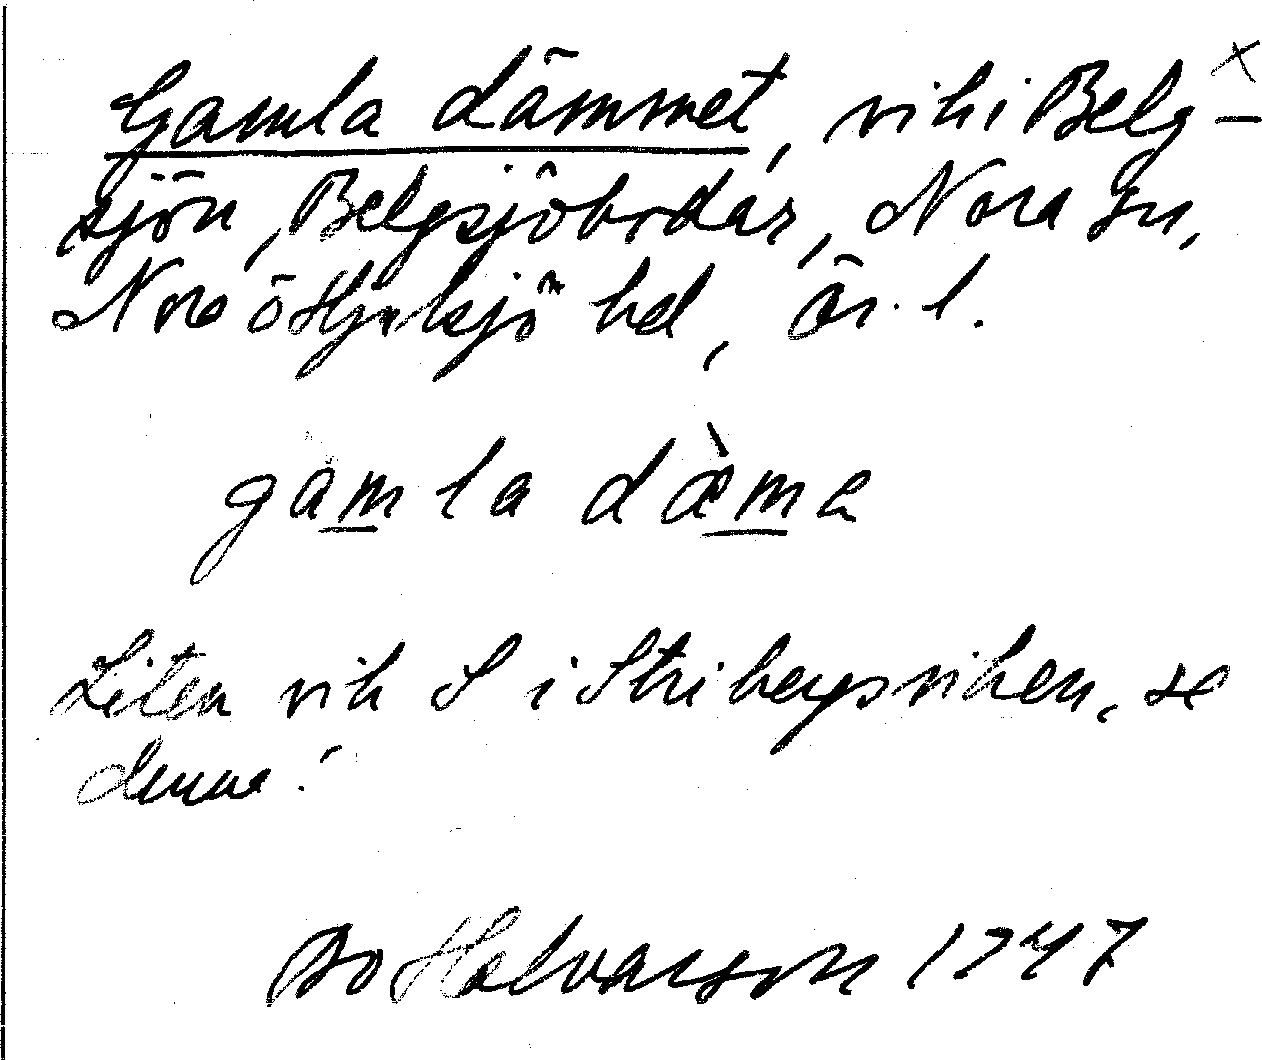 Gamla dämmet, vik i Belg- x
sjön, Belgsjöbodar, Nora sn,
Nora o Hjulsjö hd, Ör. l.
gamla dæ̀ma
Liten vik S i Stribergsviken, se
denna!
Bo Halvarson 1947